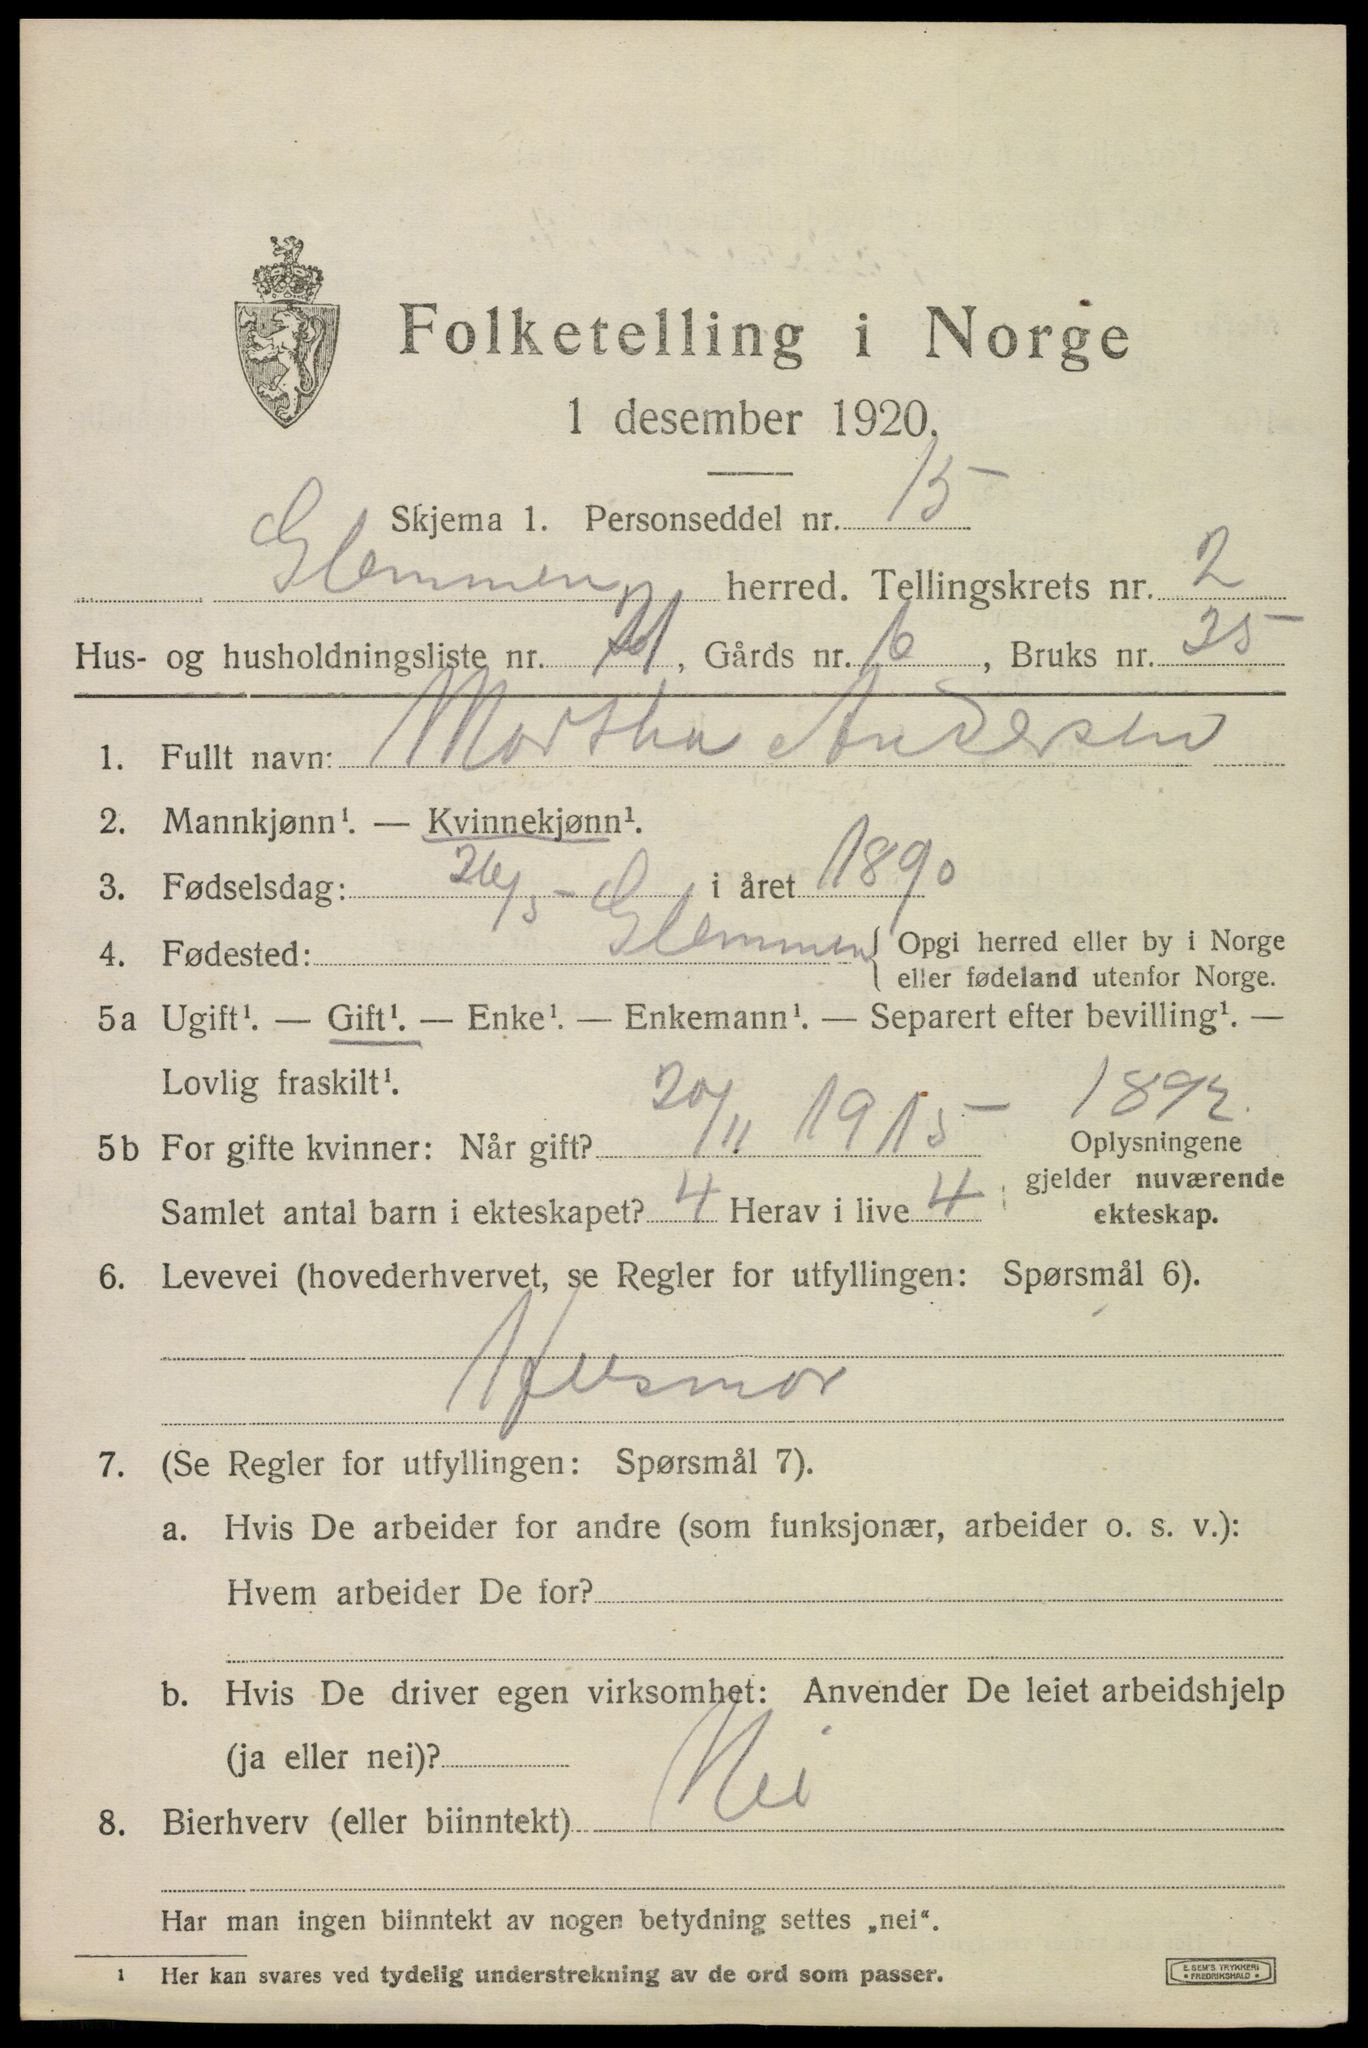 Folketelling i Norge
1 desember 1920.
Skjema 1. Personseddel nr. 15
Glemmen herred. Tellingskrets nr. 2
Hus- og husholdningsliste nr. , Gårds nr. 6, Bruks nr. 35
1. Fullt navn: Martha Andersen
2. Mannkjønn¹. — Kvinnekjønn¹.
3. Fødselsdag: 26/5 - i året 1890
4. Fødested: Glemmen { Opgi herred eller by i Norge
eller fødeland utenfor Norge.
5a Ugift¹. — Gift¹. — Enke¹. — Enkemann¹. — Separert efter bevilling¹. —
Lovlig fraskilt¹.
1892.
5b For gifte kvinner: Når gift? 20/11 1915 Oplysningene
gjelder nuværende
Samlet antal barn i ekteskapet? 4 Herav i live 4 ekteskap.
6. Levevei (hovederhvervet, se Regler for utfyllingen: Spørsmål 6).
Husmor
7. (Se Regler for utfyllingen: Spørsmål 7).
a. Hvis De arbeider for andre (som funksjonær, arbeider o. s. v.):
Hvem arbeider De for?
b. Hvis De driver egen virksomhet: Anvender De leiet arbeidshjelp
(ja eller nei)?
8. Bierhverv (eller biinntekt) Nei
Har man ingen biinntekt av nogen betydning settes „nei“.
¹ Her kan svares ved tydelig understrekning av de ord som passer.
E. SEM'S TRYKKERI
• FREDRIKSHALD •